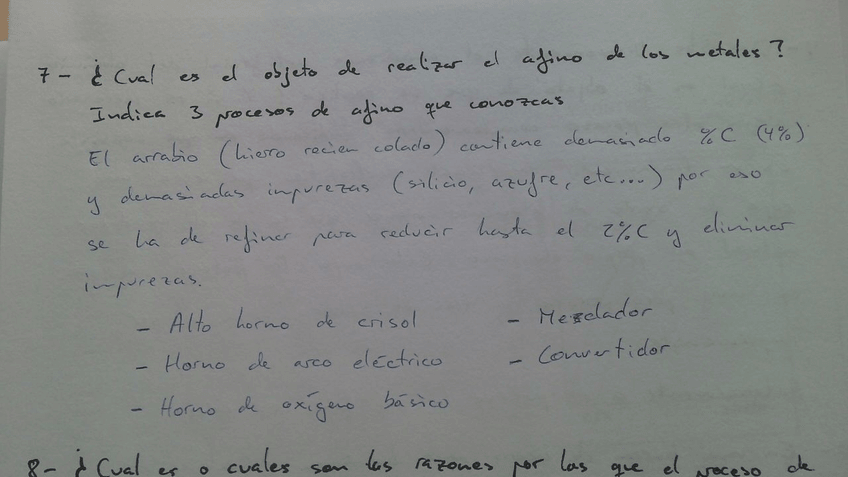 7- ¿Cual es el objeto de realizar el afino de los metales?
Indica 3 procesos de afino que conozcas
El arrabio (hierro recien colado) contiene demasiado %C (4%)
y demasiadas impurezas (silicio, azufre, etc...) por eso
se ha de refinar para reducir hasta el 2%C y eliminar
impurezas.
- Alto horno de crisol
- Horno de arco eléctrico
- Horno de oxígeno básico
- Mezclador
- Convertidor
8- ¿Cual es o cuales son las razones por las que el proceso de